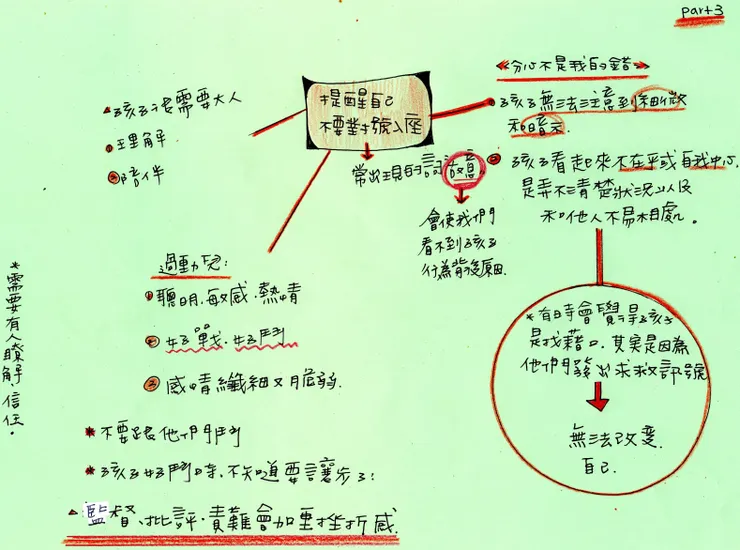 part 3
提醒自己
不要對號入座
常出現的話 故意。
會使我們
看不到孩子
行為背後原因.
《分心不是我的錯》
孩子無法注意到細微
和暗示.
孩子看起來不在乎或自我中心,
是弄不清楚狀況以及
和他人不易相處。
*有時會覺得孩子
是找藉口.其實是因為
他們發出求救訊號
無法改變
自己.
孩子很需要大人
理解
陪伴
過動兒:
聰明.敏感.熱情
好戰.好鬥
感情纖細又脆弱.
*不要跟他們鬥
*孩子好鬥時、不知道要讓步了!
監督、批評.責難會加重挫折感.
*需要有人瞭解、信任.